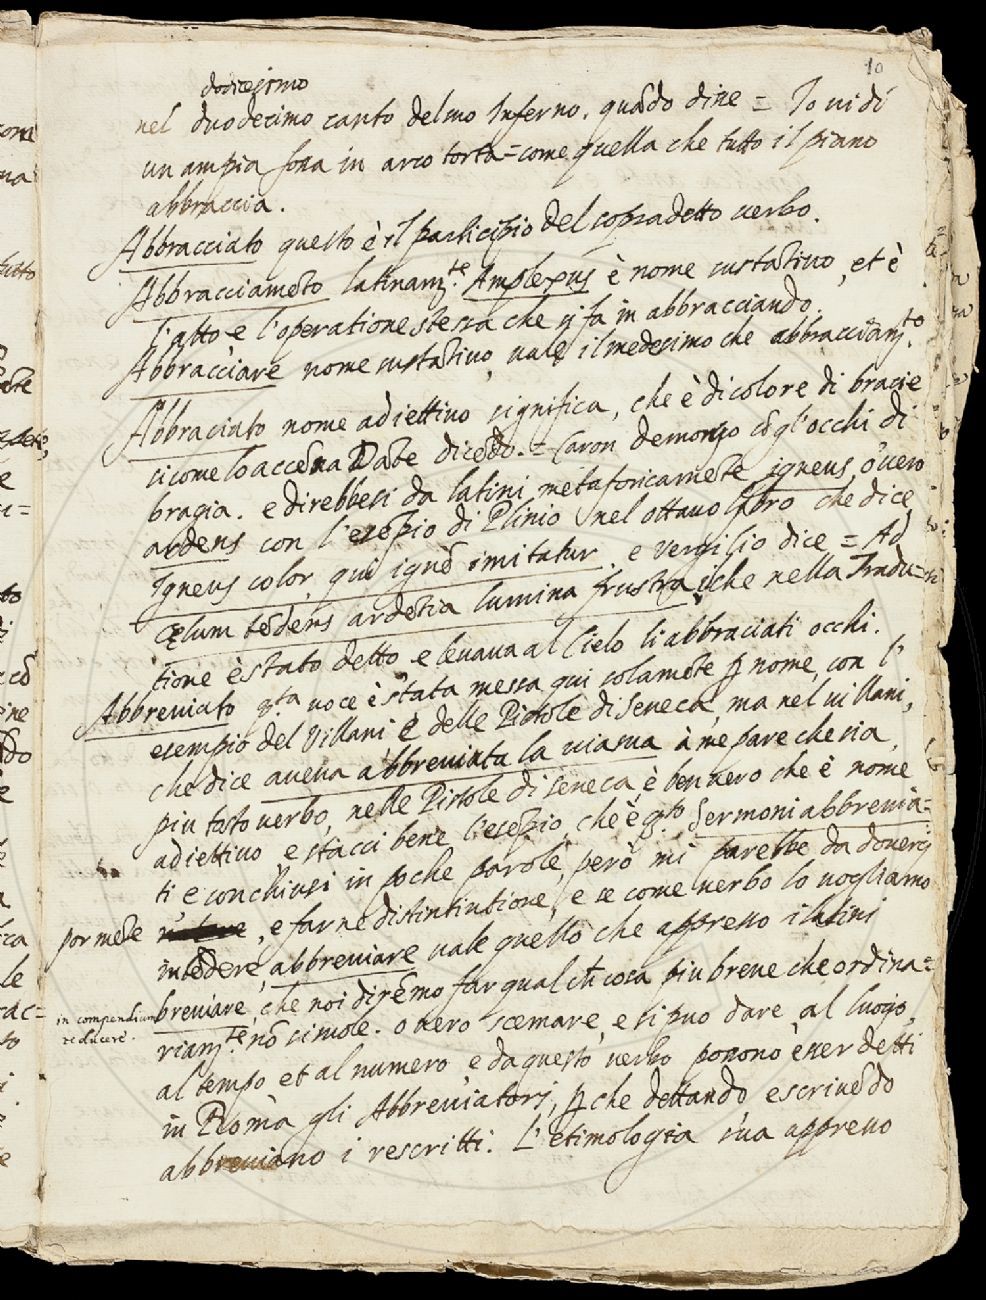 10
dodicesimo
nel duodecimo canto del suo Inferno. quãdo dice = Io uidi
un ampia fossa in arco torta = come quella che tutto il piano
abbraccia.
Abbracciato questo è il participio del sopradetto uerbo.
Abbracciamẽto latinam.te Amplexus è nome sustãtiuo, et è
l'atto e l'operatione stessa che si fa in abbracciando,
Abbracciare nome sustãtiuo, uale il medesimo che abbracciam.to
Abbraciato nome adiettiuo significa, che è di colore di bracie
sicome lo accẽna Dãte dicẽdo. = Caron demonio cõ gl'occhi di
bragia. e direbbesi da latini metaforicamẽte igneus, ouero
ardens con l'esẽpio di Plinio nel ottauo libro che dice
Igneus color, qui ignẽ imitatur. e Vergilio dice = Ad
cęlum tẽdens ardẽtia lumina frustra, che nella Tradu=
tione è stato detto e leuaua al Cielo li abbraciati occhi.
Abbreuiato q.ta uoce è stata messa qui solamẽte p nome, con l'
esempio del Villani e delle Pistole di Seneca, ma nel uillani,
che dice aueua abbreuiata la uia à me pare che sia,
piu tosto uerbo, nelle Pistole di Seneca, è ben uero che è nome
adiettiuo, e stacci bene l'esẽpio, che è q.to Sermoni abbreuia=
ti, e conchiusi in poche parole, però mi parebbe da douersi
por mẽte , e farne distintione, e se come uerbo lo uogliamo
intẽdere, abbreuiare uale quello che appresso i latini
breuiare, che noi dirẽmo far qual ch cosa piu breue che ordina=
in compendium
reducere.
riam.te nõ si uole. ouero scemare, e si puo dare, al luogo,
al tempo et al numero, e da questo uerbo possono esser detti
in Roma gli Abbreuiatori, p che dettando e scriuẽdo
abbreuiano i rescritti. L'etimologia sua appresso